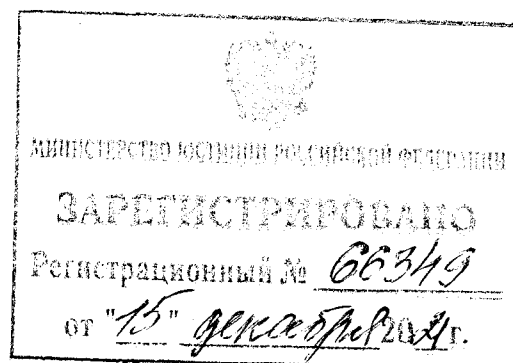 МИНИСТЕРСТВО ЮСТИЦИИ РОССИЙСКОЙ ФЕДЕРАЦИИ
ЗАРЕГИСТРИРОВАНО
Регистрационный № 66349
от "15" декабря 2021г.